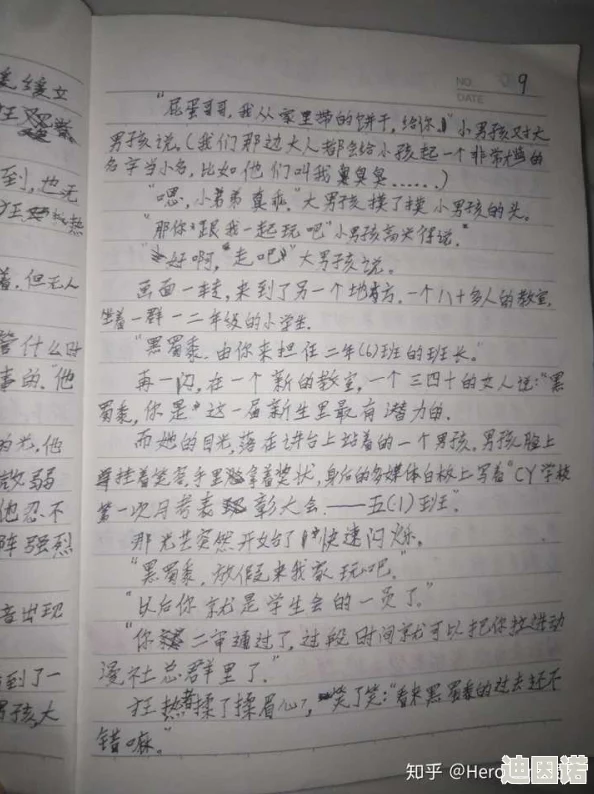 毛线女
NO.
9
DATE
"屁蛋哥哥,我从家里带的饼干,给你。"小男孩对大
男孩说。(我们那边大人都会给小孩起一个非常尴尬的
名字当小名,比如他们叫我臭臭臭……)
到,也无
"嗯,小弟弟真乖。"大男孩摸了摸小男孩的头。
"那你跟我一起玩吧"小男孩高兴得说。
"好啊,走吧"大男孩说。
着,但无人
画面一转,来到了另一个地方。一个八十多人的教室,
坐着一群一二年级的小学生.
管什么时
"黑蜀黍,由你来担任二年(6)班的班长。"
事的,他
再一闪,在一个新的教室,一个三四十的女人说:"黑
蜀黍,你是这一届新生里最有潜力的.
的光,他
而她的目光,落在讲台上站着的一个男孩,男孩脸上
放弱
挂着笑容,手里拿着奖状,身后的多媒体白板上写着"CY学校
他忍不
第一次月考表彰大会——五(1)班".
阵强烈
那光芒突然开始了快速闪烁.
"黑蜀黍,放假来我家玩吧。"
音出现
"以后你就是学生会的一员了。"
"你二审通过了,过段时间就可以把你拉进动
到了一
漫社总群里了。"
男孩,大
狂热揉了揉眉心,笑了笑:"看来黑蜀黍的过去还不
错嘛。"
知乎 @Hero
迪因诺